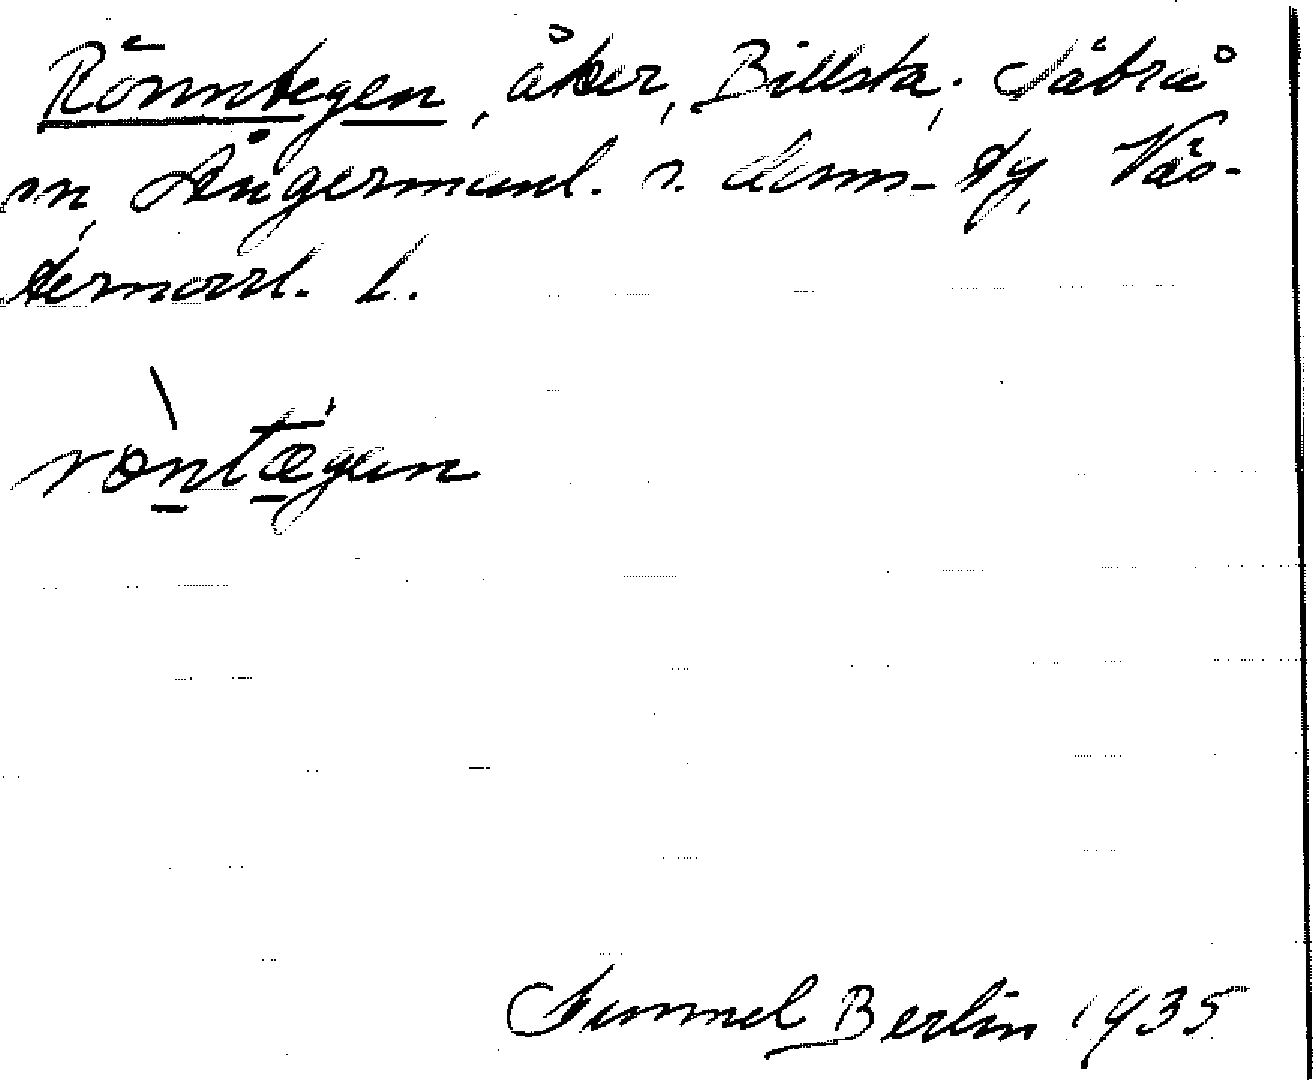 Rönntegen, åker, Billsta, Säbrå
sn, Ångermanl. s. doms- tg, Väs-
ternorrl. l.
röntægan
Gunnel Berlin 1935